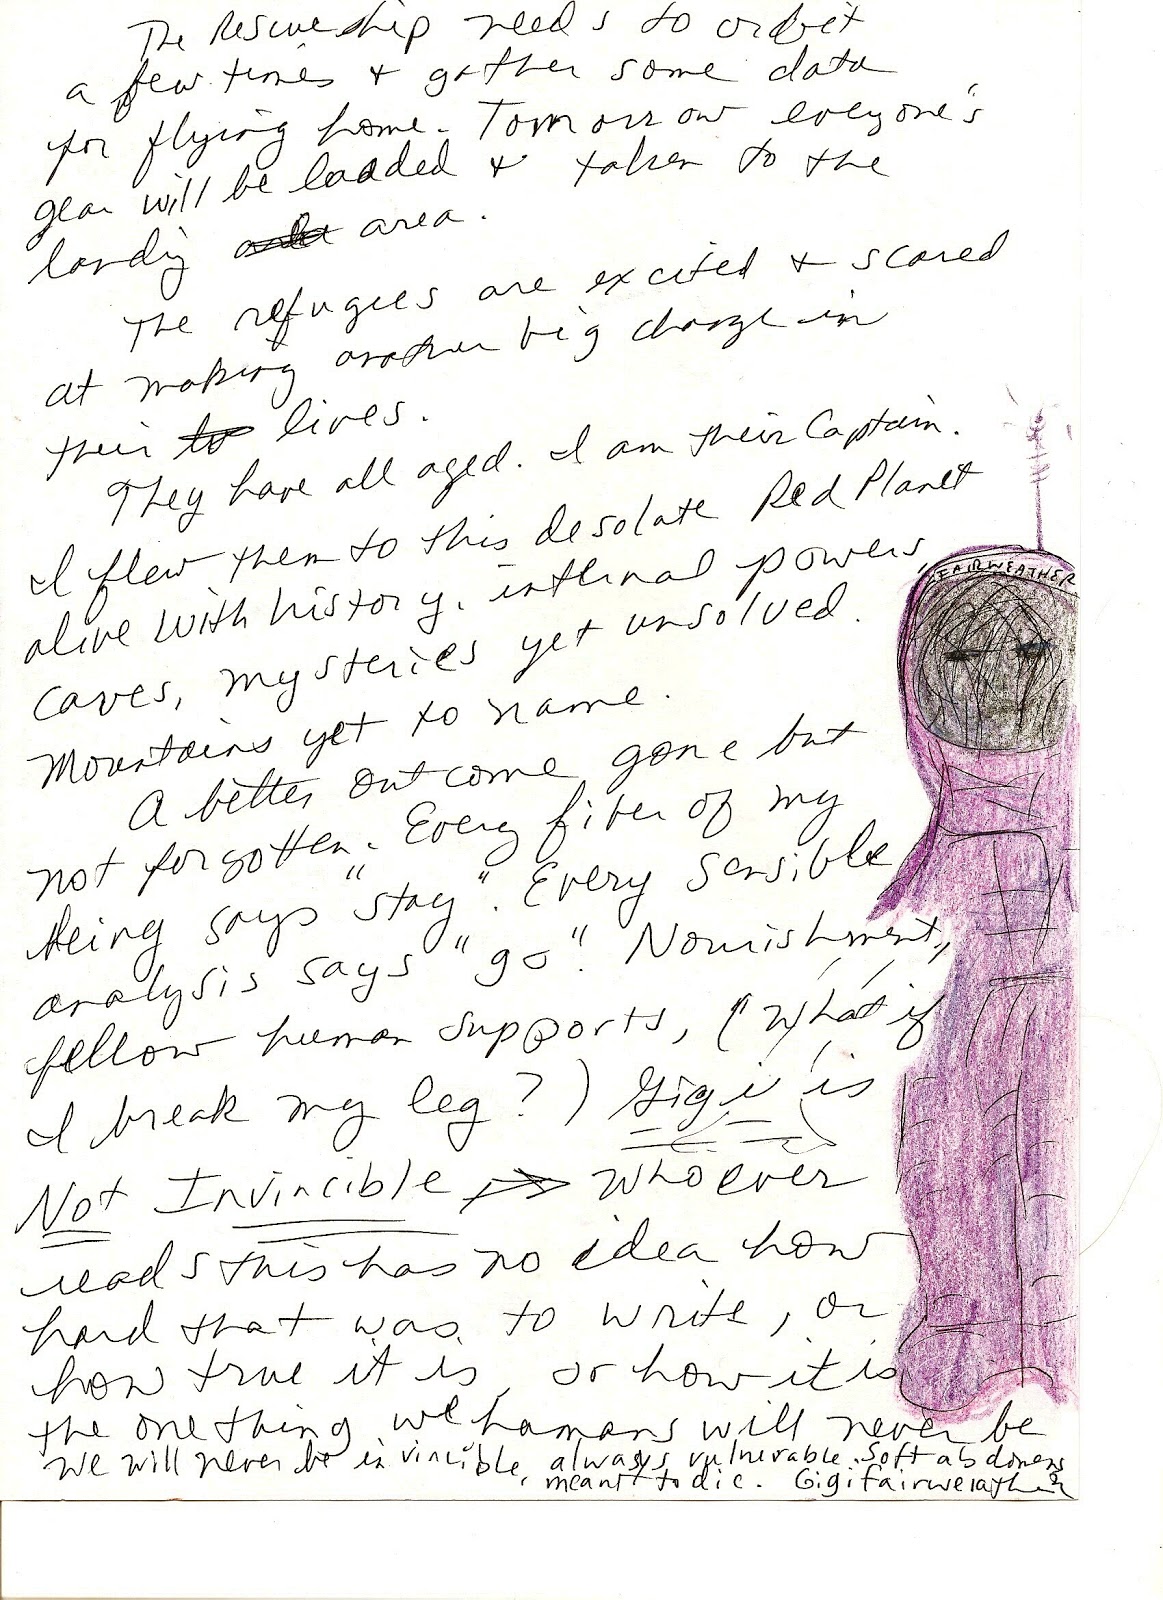 The Rescue ship needs to orbit
a few times + gather some data
for flying home. Tomorrow everyone's
gear will be loaded + taken to the
landig area.
The refugees are excited + scared
at making another big change in
their to lives.
They have all aged. I am their Captain.
I flew them to this desolate Red Planet
alive with history, internal powers,
caves, mysteries yet unsolved.
Mountains yet to name.
FAIRWEATHER
A better outcome gone but
not forgotten. Every fiber of my
being says "stay". Every sensible
analysis says "go". Nourishment,
fellow human supports, (What if
I break my leg?) Gigi is
Not Invincible Whoever
reads this has no idea how
hard that was to write, or
how true it is, or how it is
the one thing we humans will never be
We will never be invincible, always vulnerable. Soft abdomens
meant to die. Gigi Fairweather